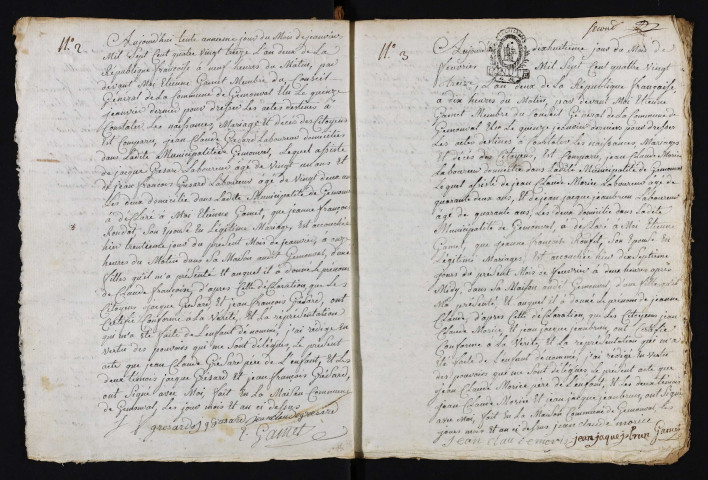 N.° 2
Aujourdhui trente unieme jour du Mois de janvier
Mil Sept Cent quatre vingt treize L'an deux de La
République françoise à neuf heures du Matin, par
devant Moi Etienne Gamet Membre du Conseil
Général de la Commune de Gemonval Elu Le quinze
janvier dernier pour dresser Les actes destinés à
Constater Les naissances, Mariages et décès des Citoyens
Est Comparu, jean Claude Grésard Laboureur domicilié
dans Ladite Municipalité de Gemonval, Lequel assisté
de jacque Grésard Laboureur âgé de vingt neuf ans et
de jean françois Grésard Laboureur âgé de vingt deux ans
Les deux domiciliés dans Ladite Municipalité de Gemonval
à déclaré à Moi Etienne Gamet, que jeanne françoise
son Epouse en Légitime Mariage, Est accouchée
hier trentieme jour du présent Mois de janvier, à onze
heures du Matin dans Sa Maison audit Gemonval, d'une
filles qu'il m'a présenté et auquel il a donné Le prénom
de Claude françoise, d'après Cette déclaration que Les
Citoyens jacque Grésard et jean françois Grésard, ont
Certifié Conforme à La Vérité, et La représentation
qui m'a été faite de L'enfant dénommé, j'ai rédigé en
vertus des pouvoirs qui me Sont délégués, Le présent
acte que jean Claude Grésard père de L'enfant, et Les
deux témoins jacque Grésard et jean françois Grésard,
ont Signé avec Moi, fait en La Maison Commune
de Gemonval, Les jour mois et an ci dessus
E. Gamet
N.° 3
Aujourdhui dixhuitieme jour du Mois de
fevrier Mil Sept Cent quatre vingt
treize, L'an deux de la République françoise,
à dix heures du Matin, par devant Moi Etienne
Gamet Membre du Conseil Général de la Commune de
Gemonval Elu Le quinze janvier dernier pour dresser
Les actes destinés à Constater Les naissances Mariages
et décès des Citoyens, Est Comparu, jean Claude Morice
Laboureur domicilié dans Ladite Municipalité de Gemonval
Lequel assisté de jean Claude Morice Laboureur âgé de
quarante deux ans, et de jean jacque jeanbrun Laboureur
âgé de quarante ans, Les deux domiciliés dans Ladite
Municipalité de Gemonval, a déclaré à Moi Etienne
Gamet, que jeanne françoise son Epouse en
Légitime Mariage, Est accouchée hier dix Septieme
jour du présent Mois de fevrier à deux heures après
Midy, dans Sa Maison audit Gemonval, d'un filles qu'il
Ma présenté, et auquel il a donné Le prénom de jeanne
Claude, d'après Cette déclaration, que Les Citoyens jean
Claude Morice, et jean jacque jeanbrun, ont Certifié
Conforme à La Vérité, et La représentation qui m'a
été faite de L'enfant dénommé, j'ai rédigé en vertus
des pouvoirs que me Sont délégués Le présent acte que
jean Claude Morice père de L'enfant, et Les deux témoins
jean Claude Morice et jean jacque jeanbrun, ont Signé
avec Moi, fait en La Maison Commune de Gemonval Les
jour mois et an ci dessus jean claude morice
jean claude morice jean jaque jebrun Gamet